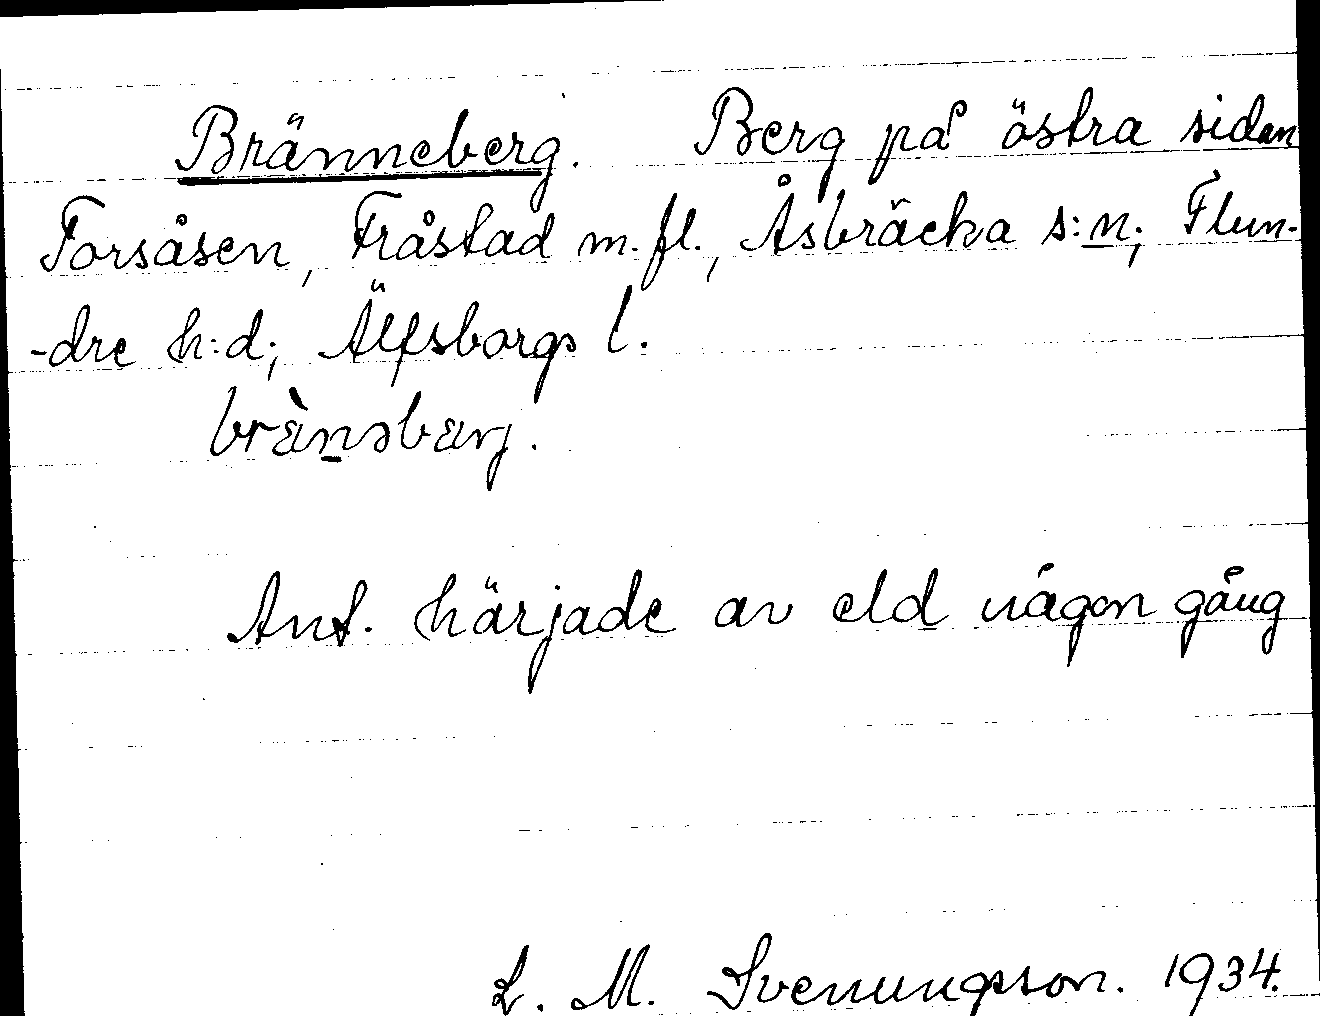 Bränneberg. Berg på östra sidan
Forsåsen, Fråstad m.fl., Åsbräcka s:n; Flun-
-dre h:d; Älfsborgs l.
brànəbærj.
Ant. härjade av eld någon gång
L. M. Svenungsson. 1934.